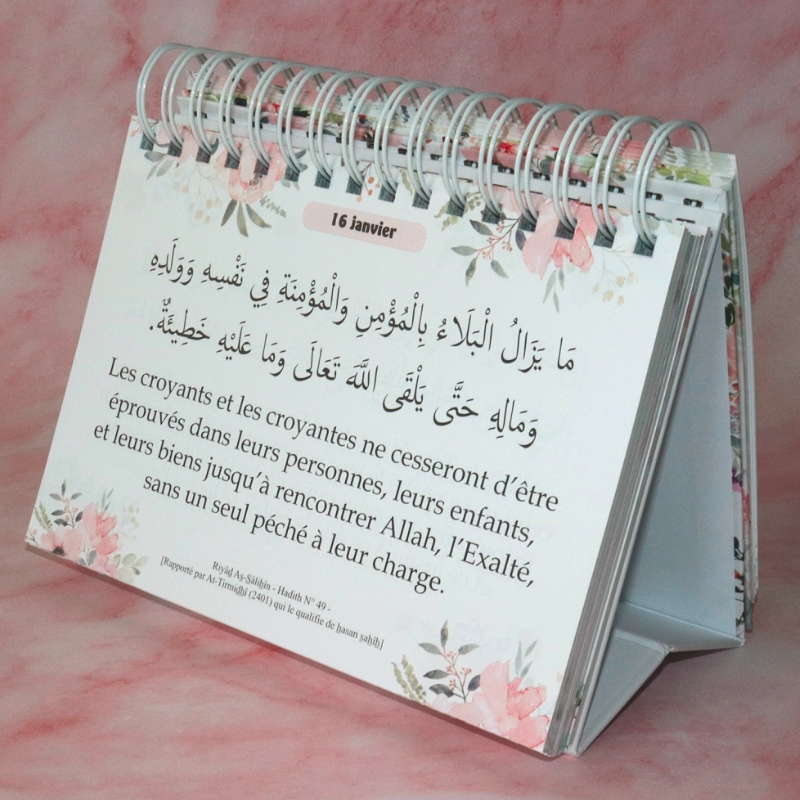 16 janvier
مَا يَزَالُ الْبَلَاءُ بِالْمُؤْمِنِ وَالْمُؤْمِنَةِ فِي نَفْسِهِ وَوَلَدِهِ
وَمَالِهِ حَتَّى يَلْقَى اللَّهَ تَعَالَى وَمَا عَلَيْهِ خَطِيئَةٌ.
Les croyants et les croyantes ne cesseront d’être
éprouvés dans leurs personnes, leurs enfants,
et leurs biens jusqu’à rencontrer Allah, l’Exalté,
sans un seul péché à leur charge.
Riyāḍ Aṣ-Ṣāliḥīn - Hadith N° 49 -
[Rapporté par At-Tirmidhī (2401) qui le qualifie de ḥasan ṣaḥīḥ]